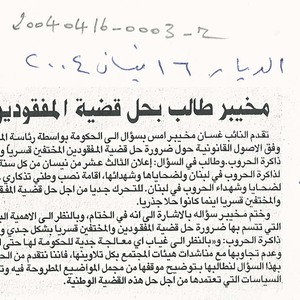 20040416-0003-2
الديار ١٦ نيسان ٢٠٠٤
مخيبر طالب بحل قضية المفقودين
تقدم النائب غسان مخيبر امس بسؤال الى الحكومة بواسطة رئاسة الم
وفق الاصول القانونية حول ضرورة حل قضية المفقودين المختفين قسرياً و
لذاكرة الحروب. وطالب في السؤال: إعلان الثالث عشر من نيسان من كل سنة
لذكرة الحروب في لبنان وضحاياها وشهدائها، اقامة نصب وطني تذكاري
لضحايا وشهداء الحروب في لبنان. للتحرك جدياً من اجل حل قضية المفقـ
والمختفين قسريا اينما كانوا حلا جذريا.
وختم مخيبر سؤاله بالاشارة الى انه في الختام، وبالنظر الى الاهمية الب
التي تتسم بها ضرورة حل قضية المفقودين والمختفين قسريا بشكل جدي و
ذاكرة الحروب: «وبالنظر الى غياب اي معالجة جدية للحكومة لها حتى ا
وعدم تجاوبها مع مناشدات هيئات المجتمع بكل تلاوينها، فاننا نتقدم من الحكـ
بهذا السؤال لنطالبها بتوضيح موقفها من مجمل المواضيع المطروحة فيه وتـ
السياسات التي تعتمدها من اجل حل هذه القضية الوطنية.